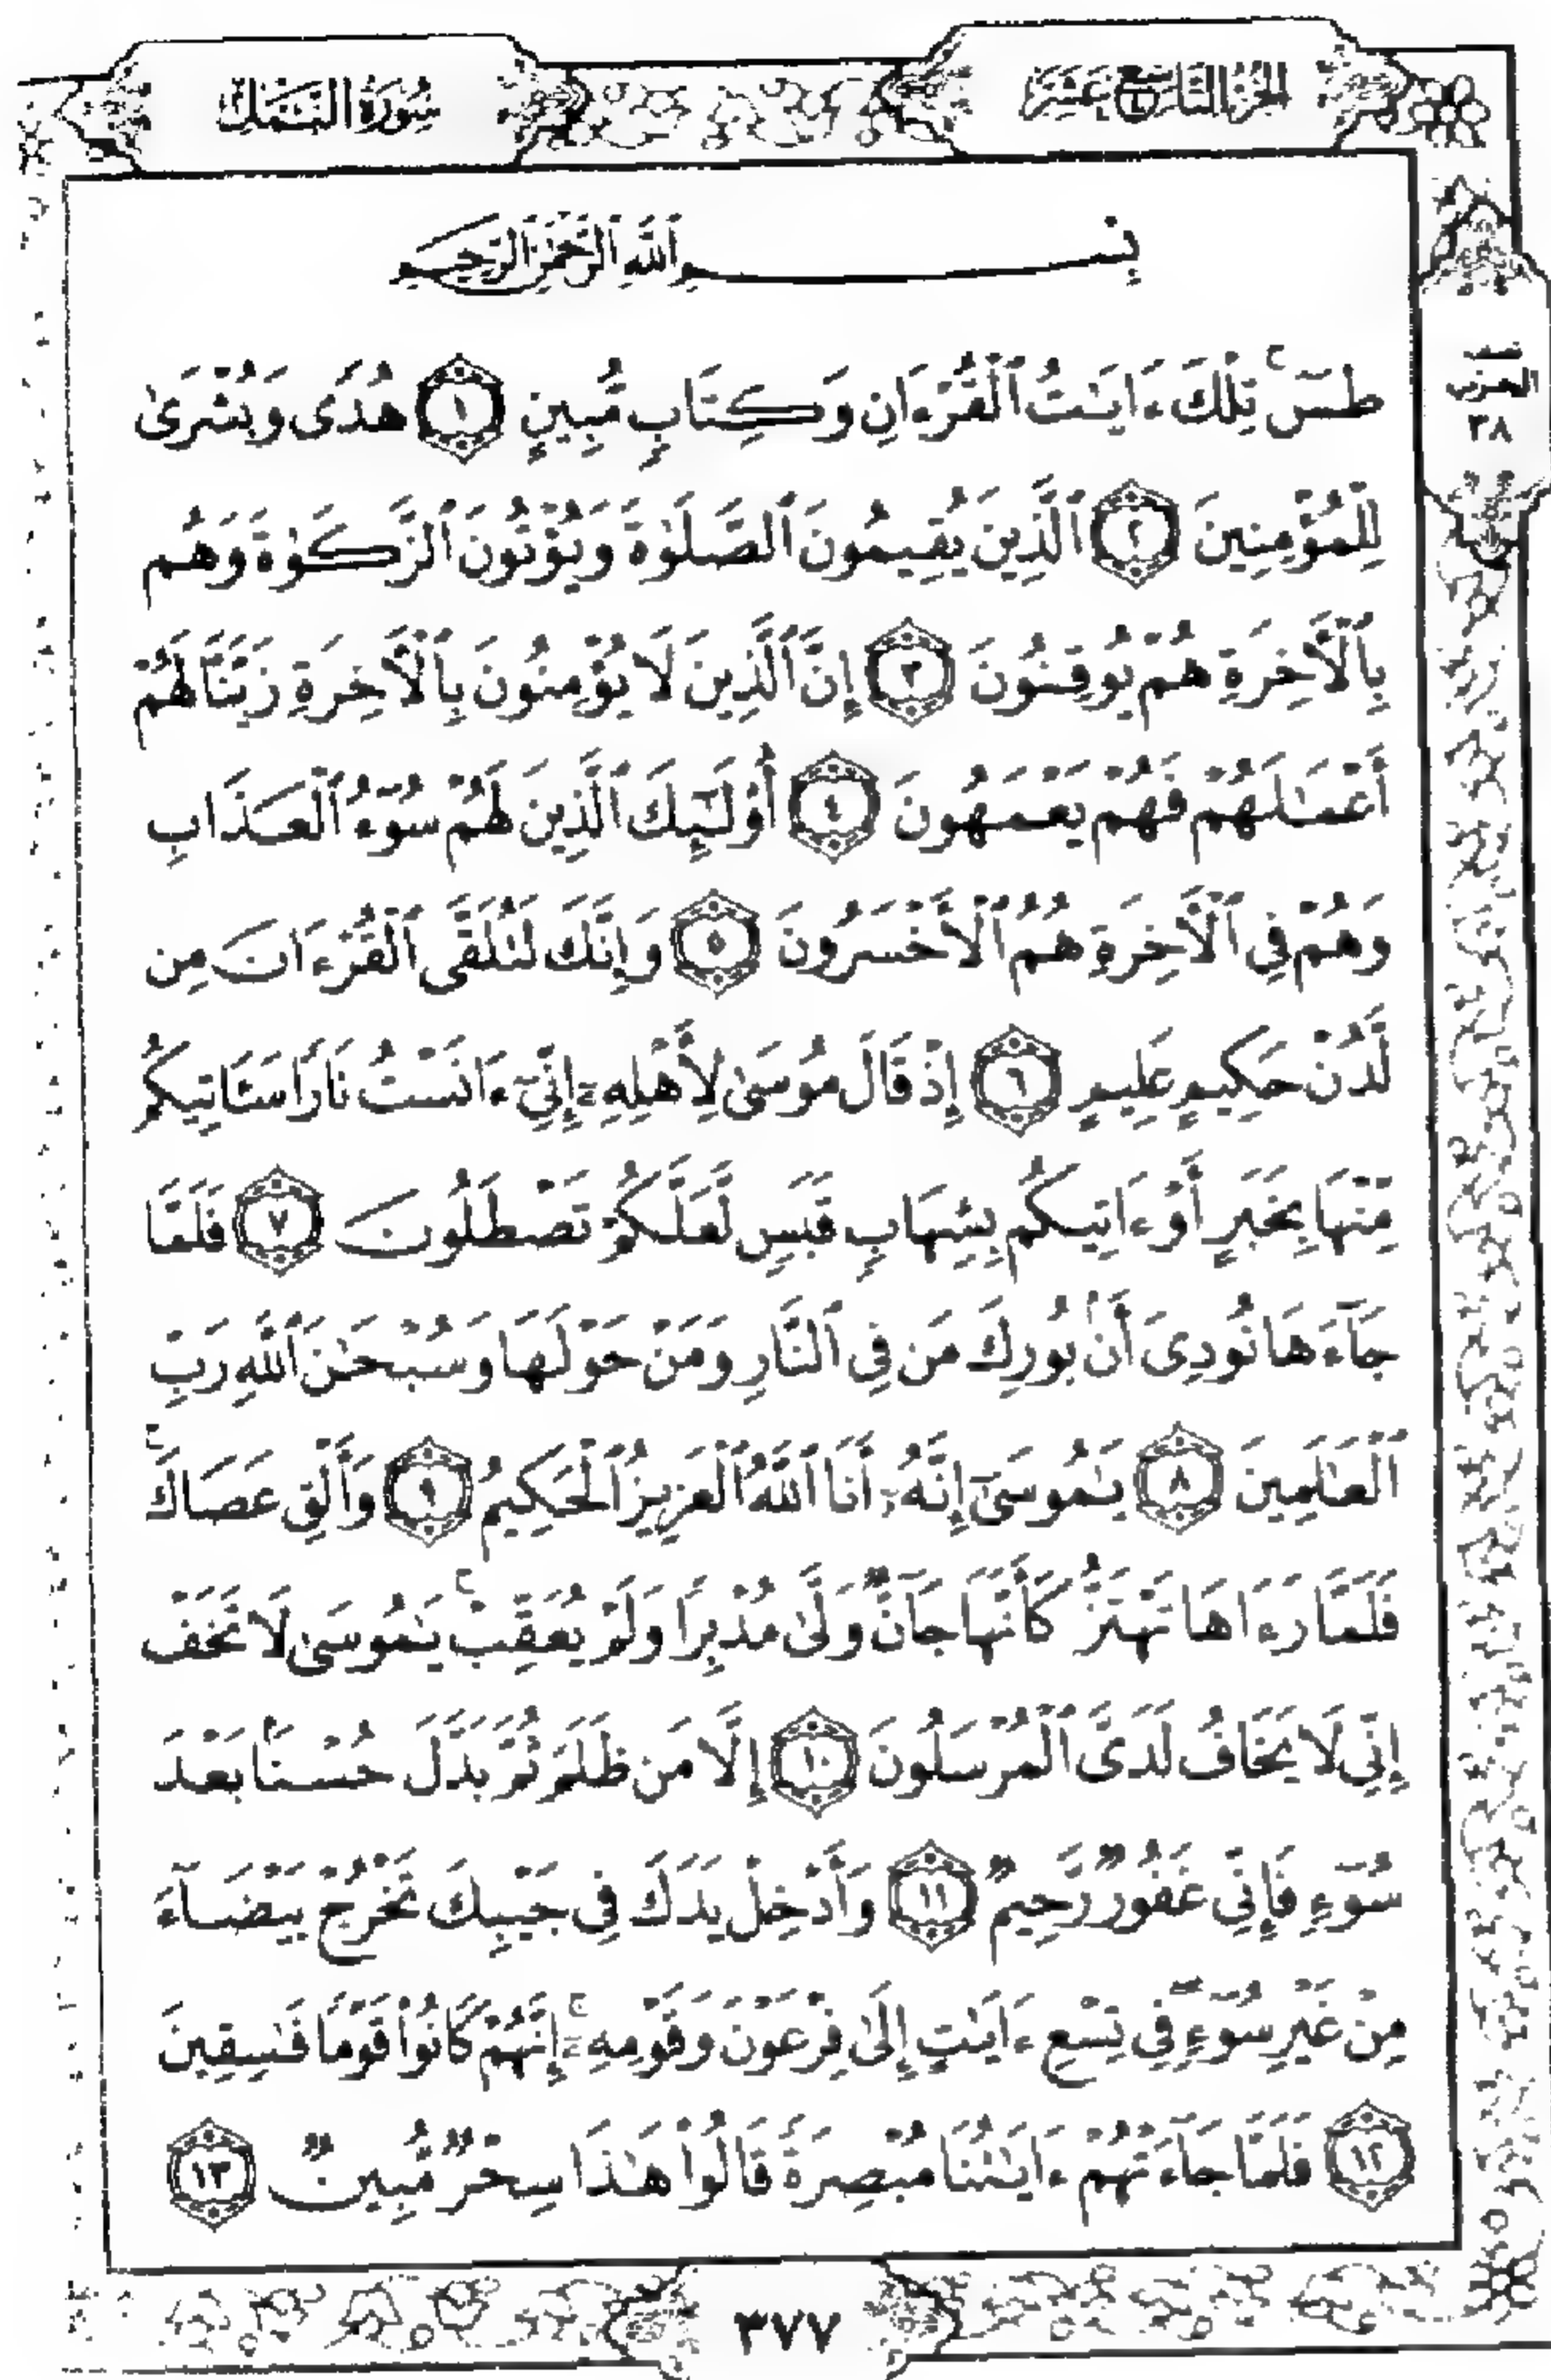 الجزء التاسع عشر
سورة النمل
بِسْمِ ٱللَّهِ ٱلرَّحْمَٰنِ ٱلرَّحِيمِ
طسٓ ۚ تِلْكَ ءَايَٰتُ ٱلْقُرْءَانِ وَكِتَابٍ مُّبِينٍ ١ هُدًى وَبُشْرَىٰ
لِلْمُؤْمِنِينَ ٢ ٱلَّذِينَ يُقِيمُونَ ٱلصَّلَوٰةَ وَيُؤْتُونَ ٱلزَّكَوٰةَ وَهُم
بِٱلْأَخِرَةِ هُمْ يُوقِنُونَ ٣ إِنَّ ٱلَّذِينَ لَا يُؤْمِنُونَ بِٱلْأَخِرَةِ زَيَّنَّا لَهُمْ
أَعْمَٰلَهُمْ فَهُمْ يَعْمَهُونَ ٤ أُو۟لَٰٓئِكَ ٱلَّذِينَ لَهُمْ سُوٓءُ ٱلْعَذَابِ
وَهُمْ فِى ٱلْأَخِرَةِ هُمُ ٱلْأَخْسَرُونَ ٥ وَإِنَّكَ لَتُلَقَّى ٱلْقُرْءَانَ مِن
لَّدُنْ حَكِيمٍ عَلِيمٍ ٦ إِذْ قَالَ مُوسَىٰ لِأَهْلِهِۦٓ إِنِّىٓ ءَانَسْتُ نَارًا سَـَٔاتِيكُم
مِّنْهَا بِخَبَرٍ أَوْ ءَاتِيكُم بِشِهَابٍ قَبَسٍ لَّعَلَّكُمْ تَصْطَلُونَ ٧ فَلَمَّا
جَآءَهَا نُودِىَ أَنۢ بُورِكَ مَن فِى ٱلنَّارِ وَمَنْ حَوْلَهَا وَسُبْحَٰنَ ٱللَّهِ رَبِّ
ٱلْعَٰلَمِينَ ٨ يَٰمُوسَىٰٓ إِنَّهُۥٓ أَنَا ٱللَّهُ ٱلْعَزِيزُ ٱلْحَكِيمُ ٩ وَأَلْقِ عَصَاكَ ۚ
فَلَمَّا رَءَاهَا تَهْتَزُّ كَأَنَّهَا جَآنٌّ وَلَّىٰ مُدْبِرًا وَلَمْ يُعَقِّبْ ۚ يَٰمُوسَىٰ لَا تَخَفْ
إِنِّى لَا يَخَافُ لَدَىَّ ٱلْمُرْسَلُونَ ١٠ إِلَّا مَن ظَلَمَ ثُمَّ بَدَّلَ حُسْنًۢا بَعْدَ
سُوٓءٍ فَإِنِّى غَفُورٌ رَّحِيمٌ ١١ وَأَدْخِلْ يَدَكَ فِى جَيْبِكَ تَخْرُجْ بَيْضَآءَ
مِنْ غَيْرِ سُوٓءٍ ۖ فِى تِسْعِ ءَايَٰتٍ إِلَىٰ فِرْعَوْنَ وَقَوْمِهِۦٓ ۚ إِنَّهُمْ كَانُوا۟ قَوْمًا فَٰسِقِينَ
١٢ فَلَمَّا جَآءَتْهُمْ ءَايَٰتُنَا مُبْصِرَةً قَالُوا۟ هَٰذَا سِحْرٌ مُّبِينٌ ١٣
نصف
الحزب
٣٨
٣٧٧